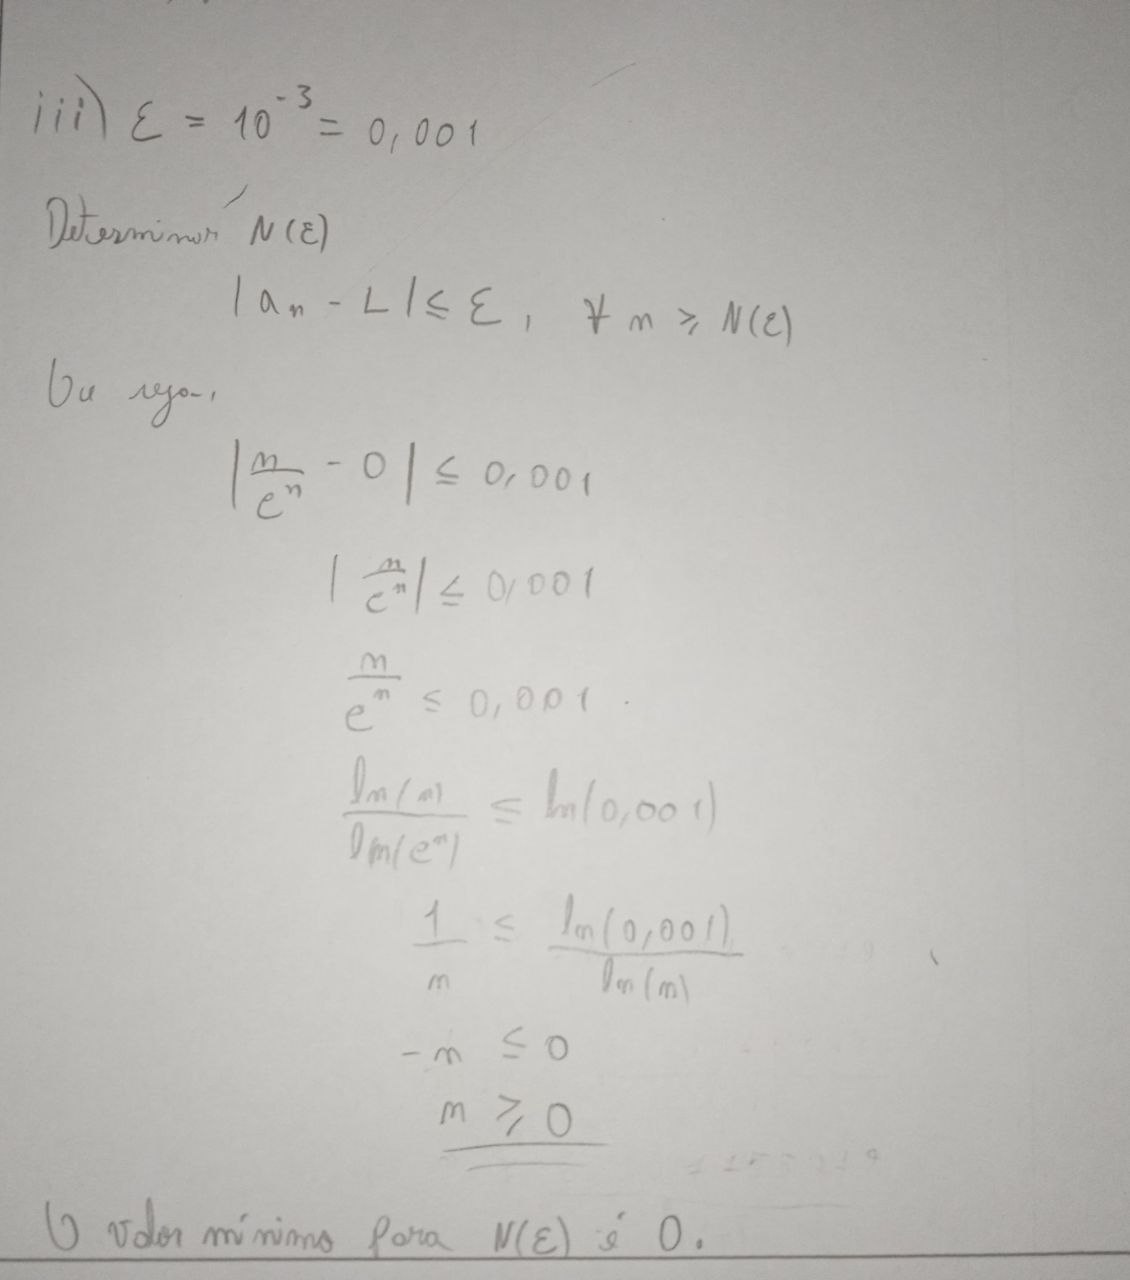 iii) ε = 10^-3 = 0,001
Determinar N(ε)
|a_n - L| ≤ ε, ∀ n ≥ N(ε)
Ou seja,
|n/e^n - 0| ≤ 0,001
|n/e^n| ≤ 0,001
n/e^n ≤ 0,001.
ln(n)/ln(e^n) ≤ ln(0,001)
1/n ≤ ln(0,001)/ln(n)
-n ≤ 0
n ≥ 0
O valor mínimo para N(ε) é 0.